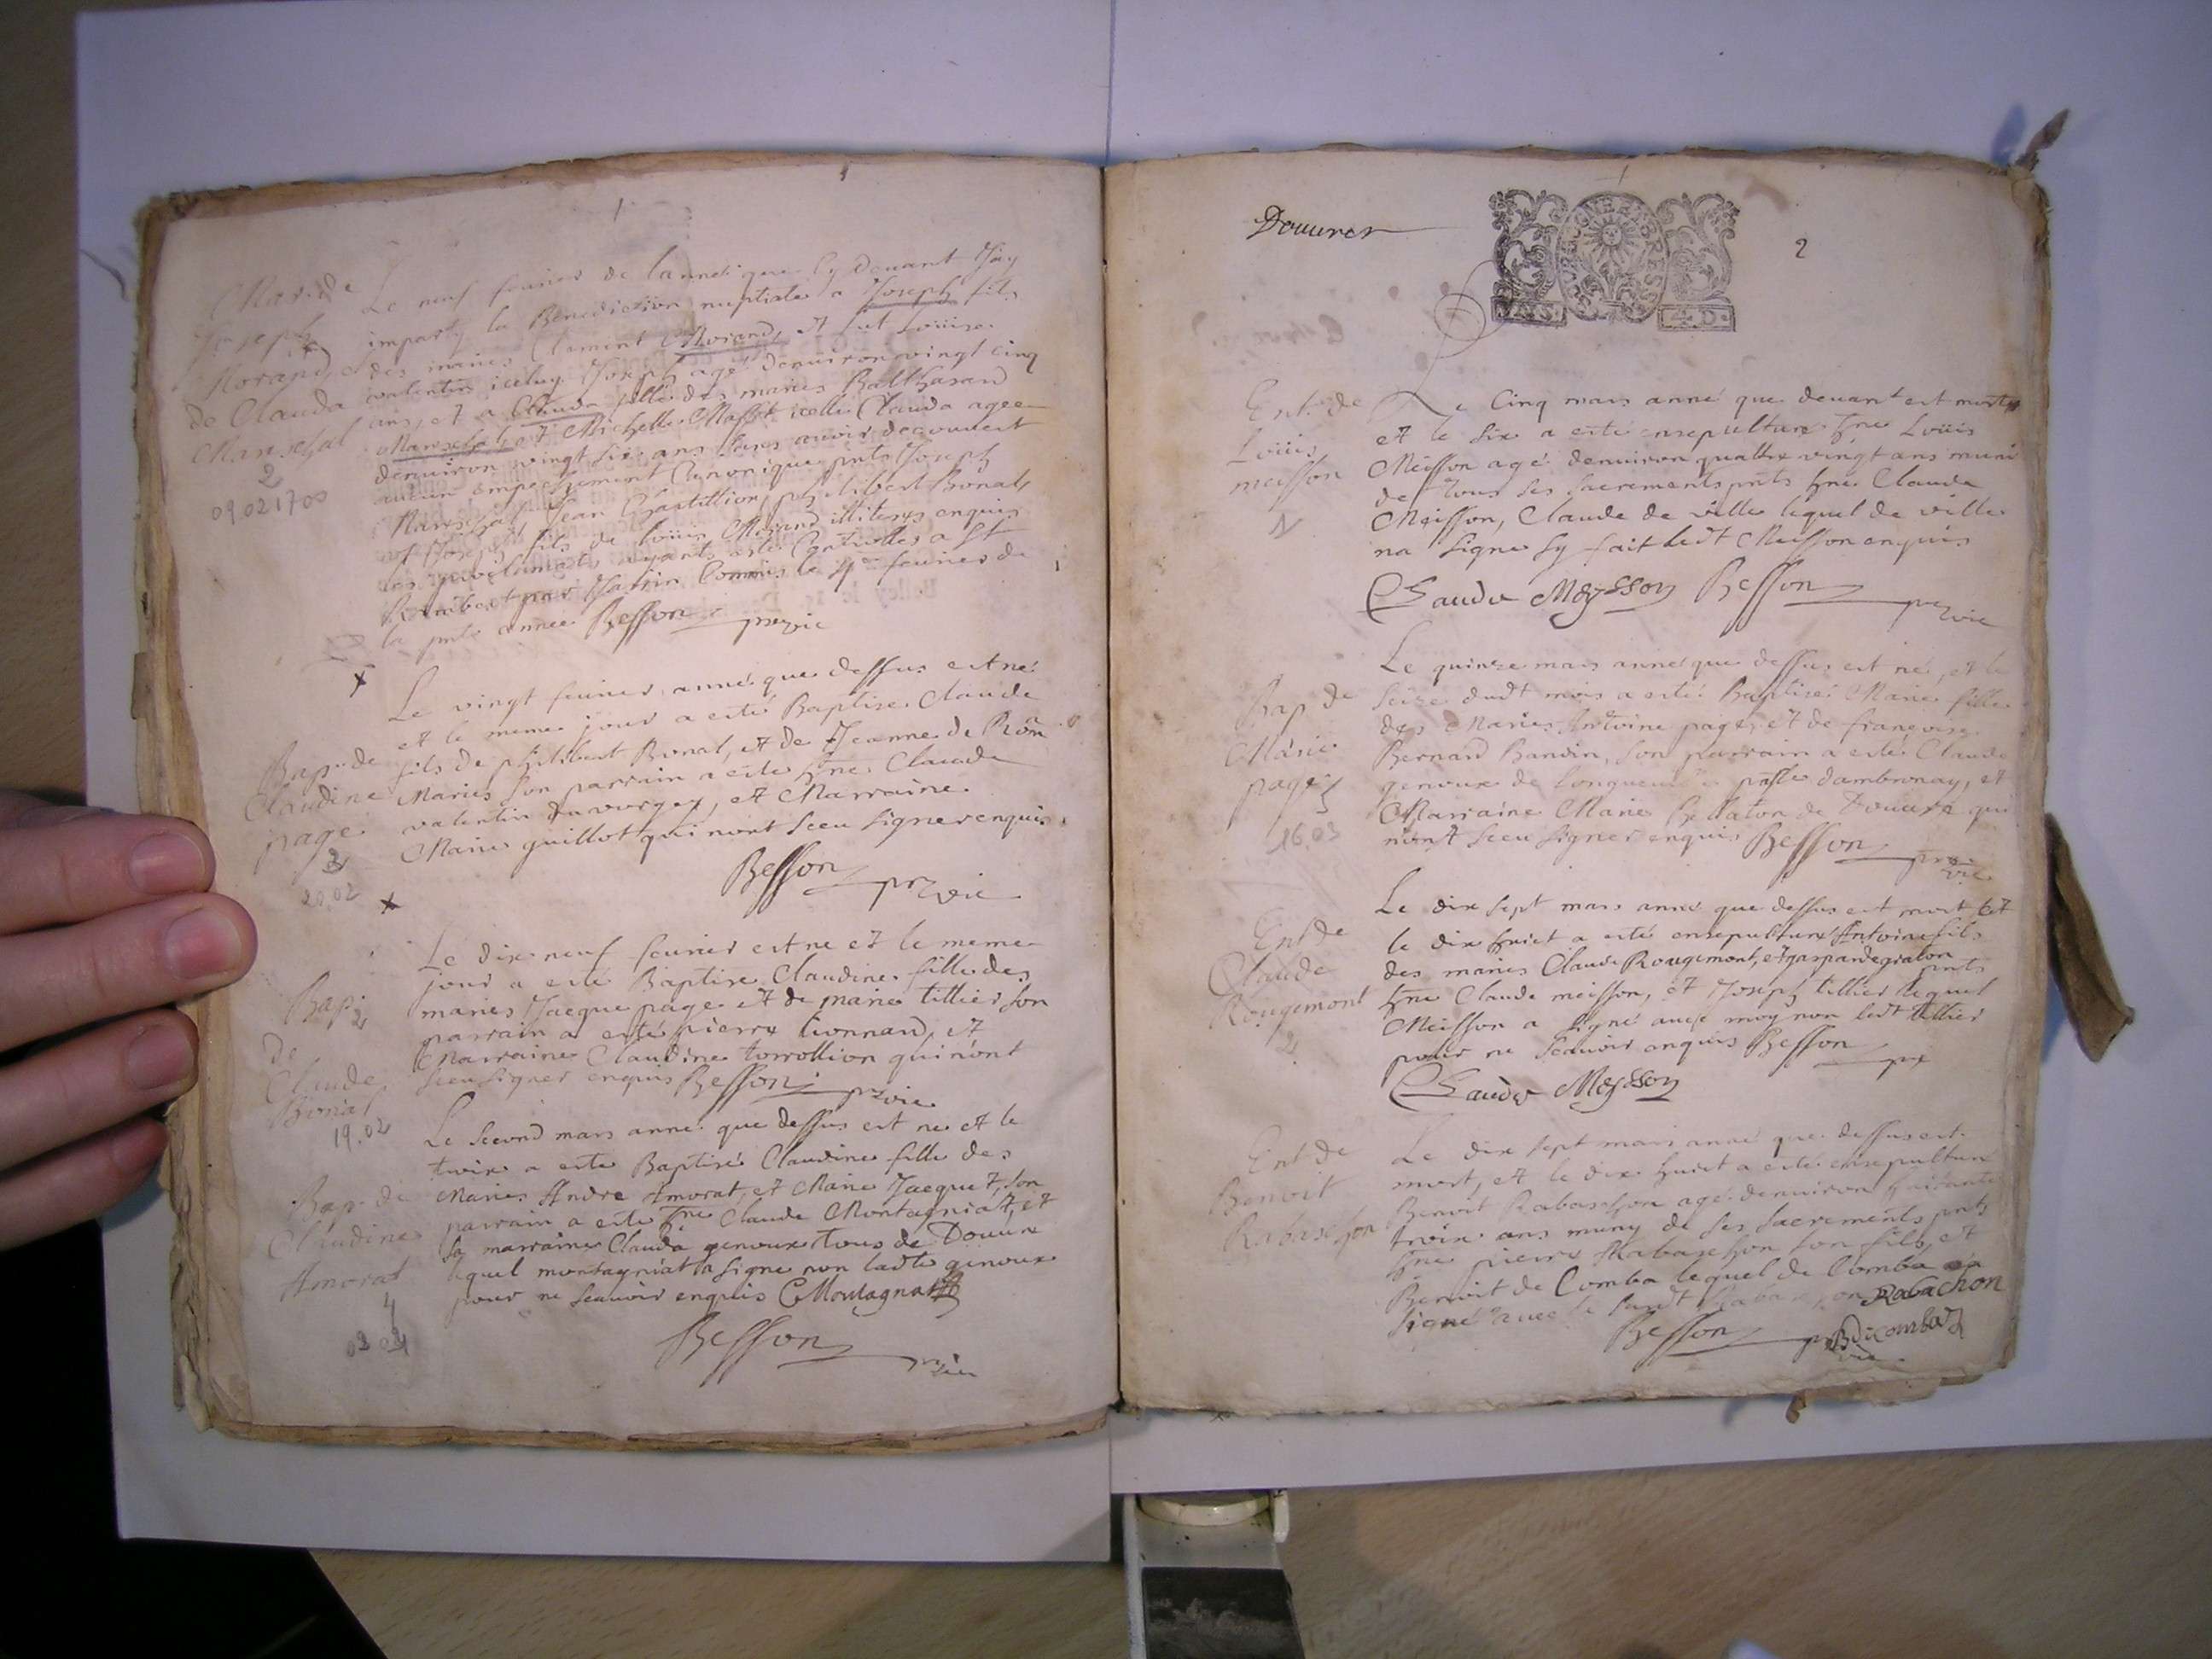 1
Mar. de
Joseph
Morand, et
de Clauda
Mareschal
2
09 02 1700
Le neuf feurier de lanneé que cy deuant Jay
imparty la Benediction nuptiale a Joseph fils
des mariés Clement Morand, et fut Loüise
valentin iceluy Joseph agé denuiron vingt cinq
ans, et a Clauda fille des mariés Balthasard
Mareschal, et Michelle Maffet icelle Clauda agee
denuiron vingt six ans sans auoir decouuert
aucun empechement Canonique pnts Joseph
Mareschal Jean Chastillion, philibert Bonat,
et Joseph fils de Loüis Morand illiteres enquis
les ayants esté Controlles a St
Rambert par Jannin Commis le 4e feurier de
la pnte anneé Besson previc
x
Bap. de
Claudine
page
3
20.02
Le vingt feurier anné que dessus est né
et le meme jour a esté Baptisé Claude
fils de philibert Bonat, et de Jeanne de Rôn
Mariés son parrain a esté hne Claude
valentin du verger, et Marraine
Marie guillot qui nont sceu signer enquis
Besson pr vic
x
Bap.
2
de
Claude
Bonat
19.02
Le dix neuf feurier est ne et le meme
jour a esté Baptisé Claudine fille des
mariés Jacque page et de marie tillier son
parrain a esté pierre Lionnard, et
Marraine Claudine torrollion qui n'ont
sceu signer enquis Besson prvic
Bap. de
Claudine
Amorat
4
03 03
Le second mars anné que dessus est ne et le
troix a esté Baptisé Claudine fille des
Mariés Andre Amorat, et Marie Jacquet, son
parrain a esté hne Claude Montagniat, et
sa marraine Clauda genoux tous de Douure
lequel montagniat a signe non ladte genoux
pour ne scauoir enquis C Montagnat
Besson prvic
Douures
2
4. D.
Ent. de
Loüis
meisson
1
Le Cinq mars anné que deuant est mort
et le six a esté ensepulturé hne Loüis
Meisson agé denuiron quattre vingt ans muni
de tous ses sacrements pnts hne Claude
Meisson, Claude de ville lequel de ville
na signe sy fait ledt Meisson enquis
Claude Meysson Besson pr vic
Bap de
Marie
page
16.03
Le quinze mars anné que dessus est né, et le
seize dudt mois a esté Baptisé Marie fille
des Mariés Antoine page, et de françoise
Bernard Bandin, son parrain a esté Claude
genoux de Longueuille psse dambronay, et
Marraine Marie Bellaton de Douure qui
nont sceu signer enquis Besson pr vic
Ent de
Claude
Rougemont
2
Le dix sept mars anné que dessus est mort et
le dix huict a esté ensepulturé Antoine fils
des mariés Claude Rougemont, et gasparde graton
pnts
hne Claude meisson, et Joseph tillier lequel
Meisson a signé auec moy non ledt tillier
pour ne scauoir enquis Besson pr
Claude Meysson
Ent de
Benoit
Rabaschon
Le dix sept mars anné que dessus est
mort, et le dix huict a esté ensepulturé
Benoit Rabaschon agé denuiron huitante
troix ans muny de ses sacrements pnts
hne pierre Rabaschon son fils, et
Benoit de Comba lequel de Comba a
signé auec le susdt Rabaschon Rabachon
Besson pr vic B decomba